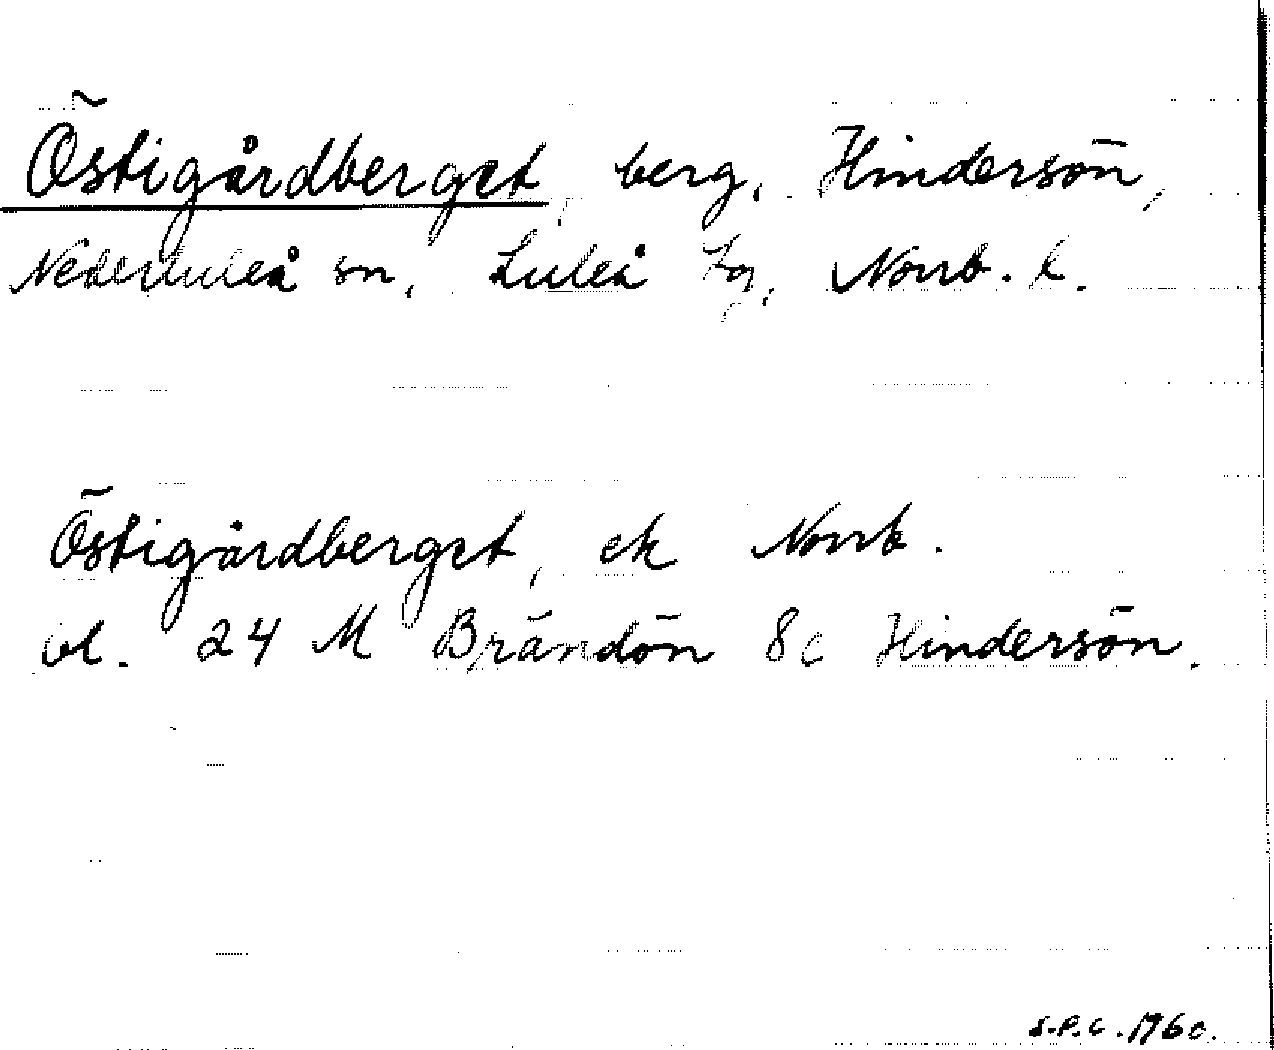 Östigårdberget, berg, Hindersön,
Nederluleå sn, Luleå tg, Norrb. l.
Östigårdberget, ek Norrb.
bl. 24 M Brändön 8c Hindersön.
S.P.C. 1960.